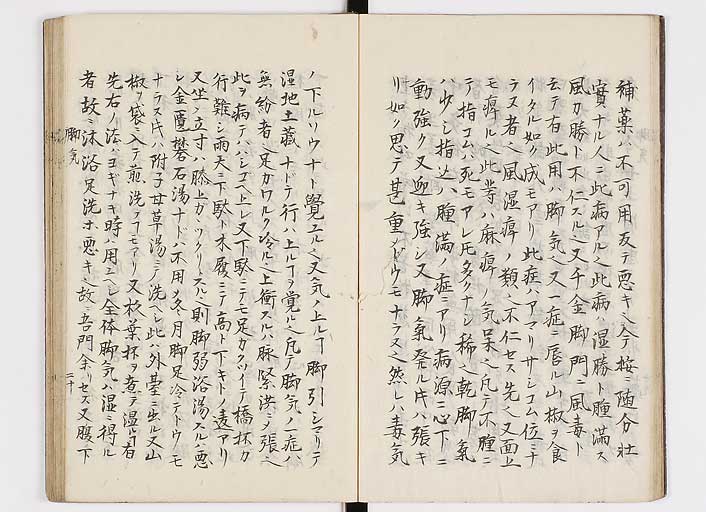 補薬ハ不可用反テ悪キ也今按ニ随分壮
實ナル人ニ此病アル也此病ハ湿勝ト腫満ス
風カ勝ト不仁スル也又千金脚門ニ風毒ト
云テ右此用ハ脚気也又一症ニ唇ル山椒ヲ食
イタル如ク成モアリ此症ハアマリサシコム位ニナ
ラヌ者也風湿痺ノ類也不仁セス先也又面上
モ痺ル也此等ハ麻痺ノ気呆也凡テ不腫ニ
テ指コムハ死モアレ𪜈多クナシ稀也乾脚氣
ハ少シ指込ハ腫満ノ症ニアリ病源ニ心下ニ
動強ク又迎キ強シ又脚氣発ル時ハ張キ
リ如ク思テ甚重クドウモナラヌ也然レハ毒気
ノ下ルソウナト覺エル也又気ノ上ルヿ脚引シマリテ
湿地土藏ナドテ行ハ上ルヿヲ覚ル也凡テ脚気ノ症ハ
無紛者也足カワルク冷ル也上衝スルハ脉緊洪ニノ張也
此ヲ病テハハシゴヘ上レ又下駄ニテモ足カクツイテ橋杯カ
行難シ雨天ニ下駄ト木履ニテ高ト下キトノ違アリ
又坐ノ立寸ハ膝上カハツクリスル也則脚弱浴湯スルハ悪
シ金匱礬石湯ナドハ不用ノ冬月脚足冷テトウノモ
ナラヌ氏ハ附子母草湯ニテ洗也此ハ外基ニ出ル又山
椒ヲ袋ニ入テ煎洗ヿモアリ又枚葉杯ヲ煮テ温ル有
先右ノ法ハヨギナキ時ハ用ユヘシ全体脚気ハ湿ニ得ル
者故ニ沐浴足洗ホ悪キ也故ニ吾門余リセス又腹下
脚気
二十